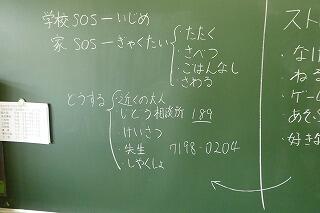 学校SOSーいじめ
家 SOSーぎゃくたい
・たたく
・さべつ
・ごはんなし
・さわる
どうする
・近くの大人
・じどう相談所 189
・けいさつ
・先生 7198-0204
・しやくしょ
スト
・なげ
・ねる
・ゲー
・あそ
・好きな